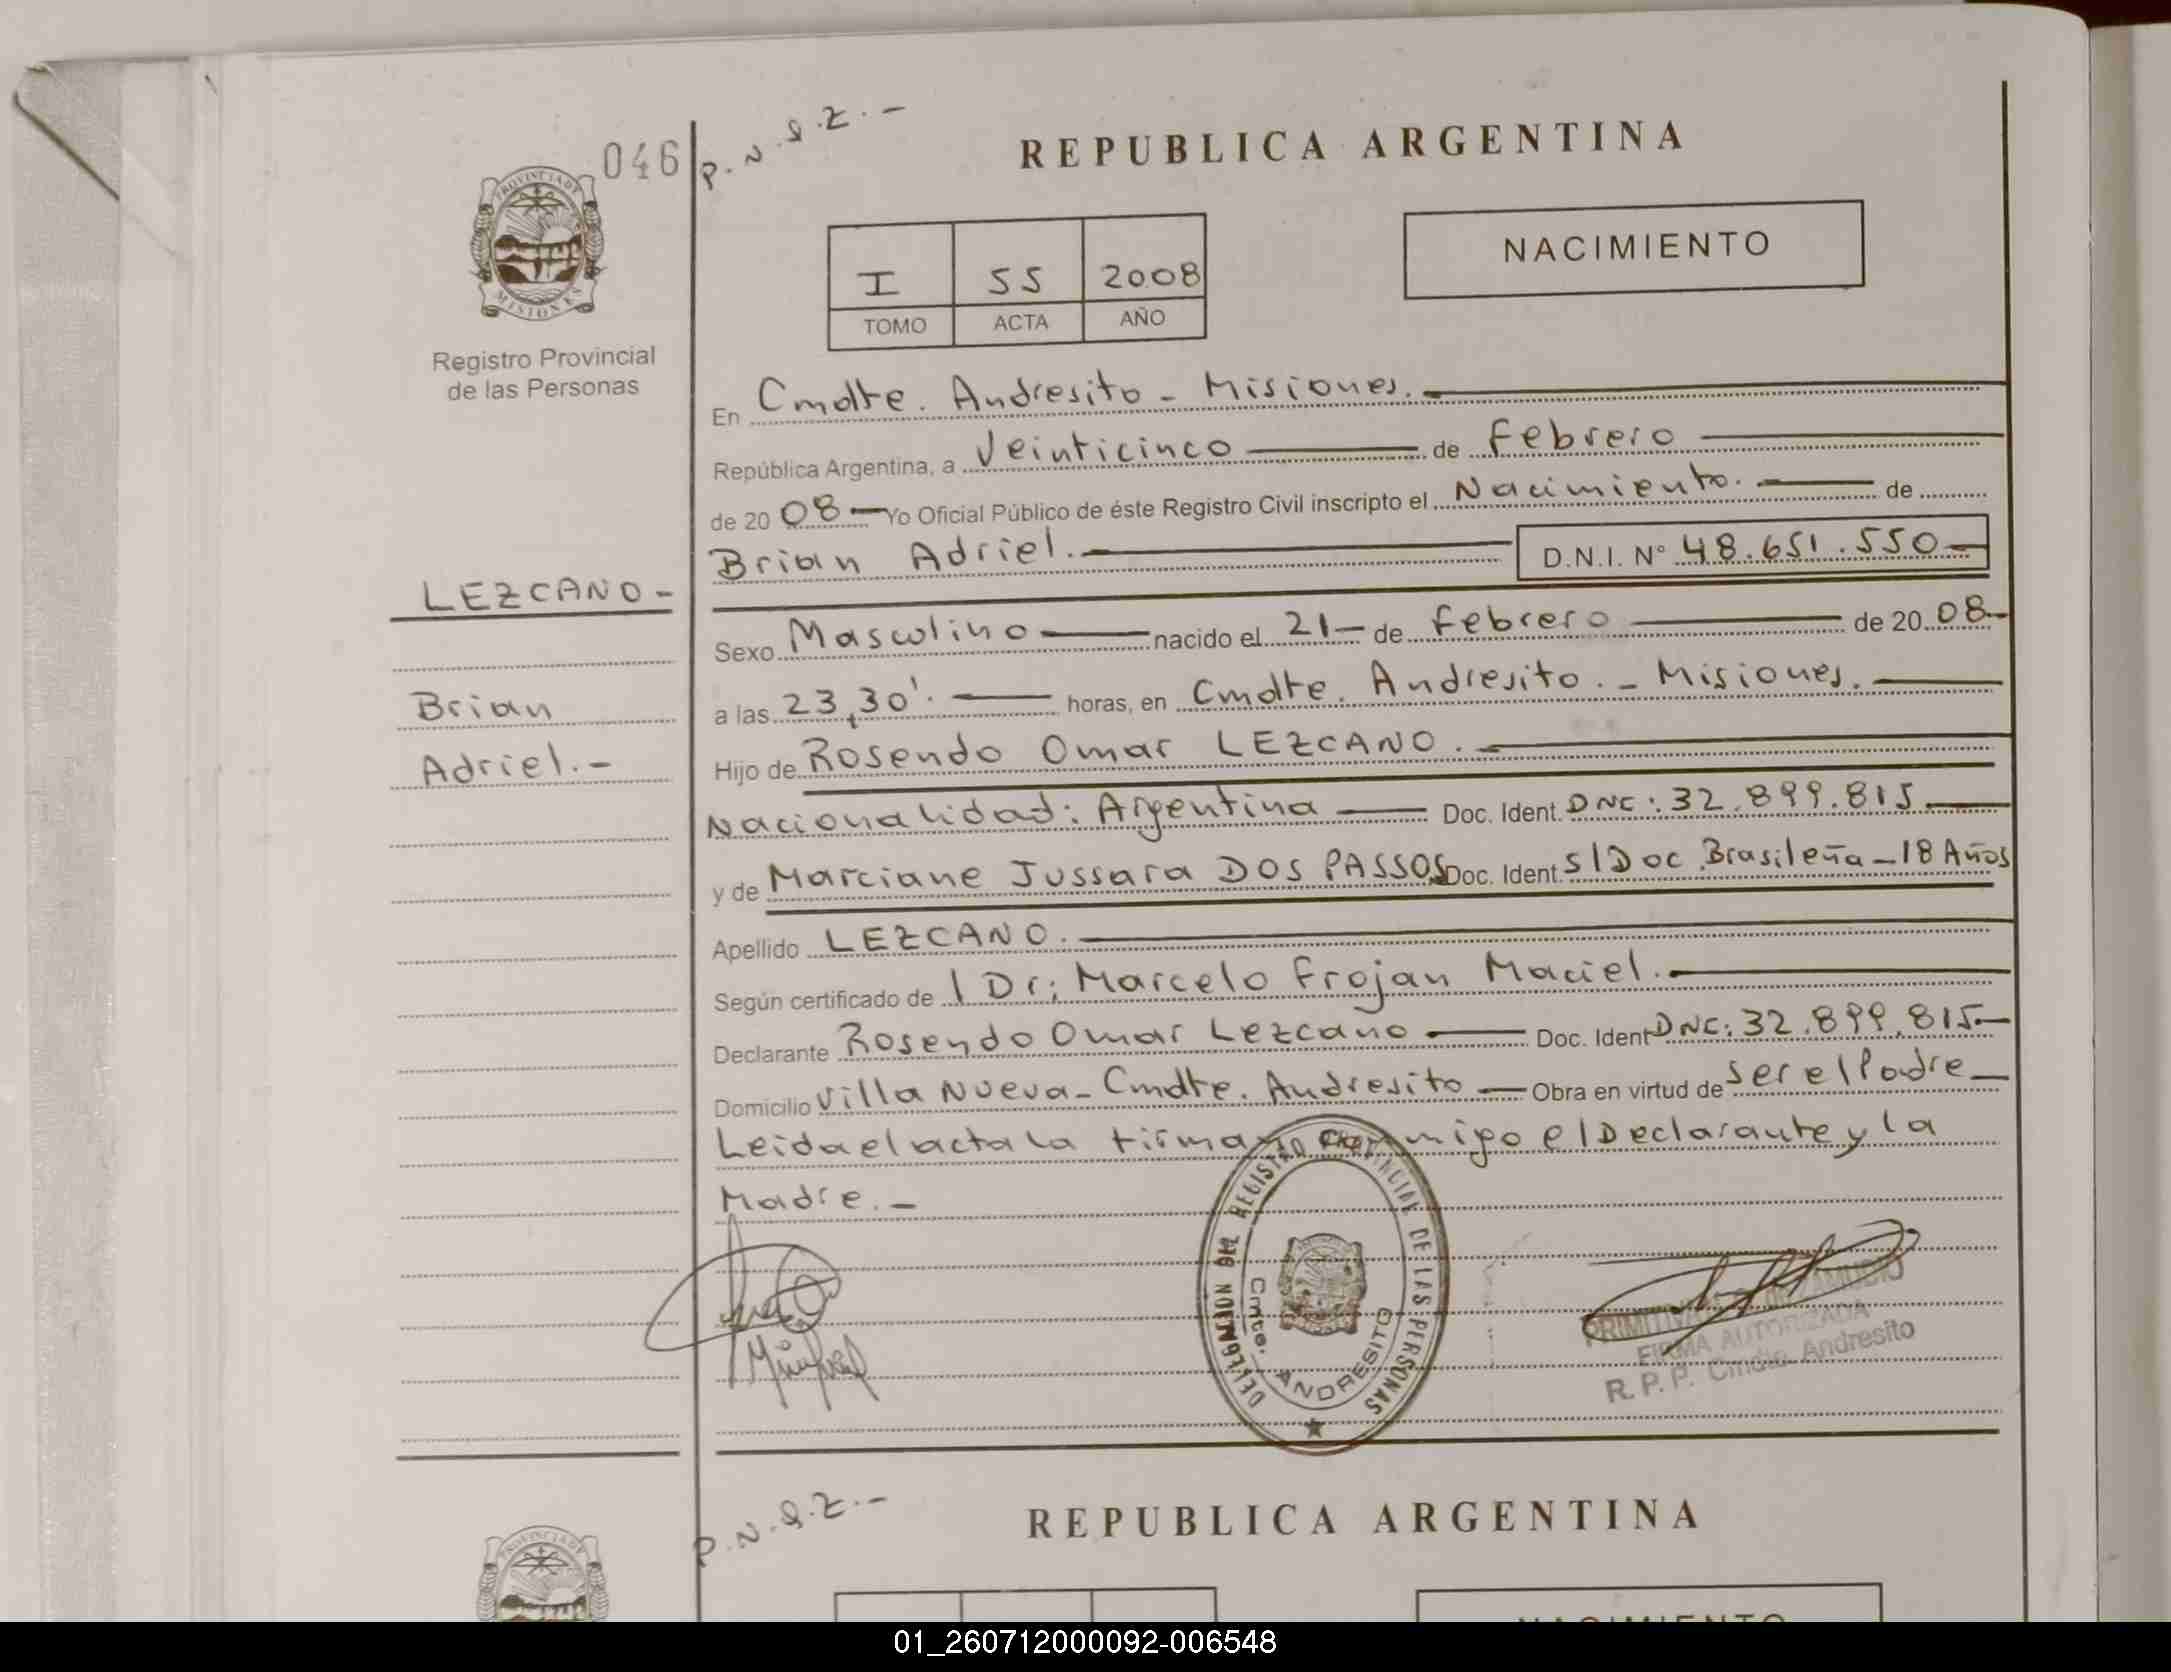 046
P.N.S.Z.-
REPUBLICA ARGENTINA
PROVINCIA DE
MISIONES
Registro Provincial
de las Personas
I 55 2008
TOMO ACTA AÑO
NACIMIENTO
En Cmdte. Andresito - Misiones.
República Argentina, a Veinticinco de Febrero
de 2008 Yo Oficial Público de éste Registro Civil inscripto el Nacimiento. de
Brian Adriel. D.N.I. Nº 48.651.550
LEZCANO -
Sexo Masculino nacido el 21 de Febrero de 2008-
Brian
a las 23,30'. horas, en Cmdte. Andresito. - Misiones.
Adriel.-
Hijo de Rosendo Omar LEZCANO.
Nacionalidad: Argentina Doc. Ident. DNC: 32.899.815.
y de Marciane Jussara DOS PASSOS Doc. Ident. S/Doc. Brasileña - 18 Años
Apellido LEZCANO.
Según certificado de / Dr; Marcelo Frojan Maciel.
Declarante Rosendo Omar Lezcano Doc. Ident DNC: 32.899.815.
Domicilio Villa Nueva - Cmdte. Andresito Obra en virtud de ser el Padre
Leida el acta la firman conmigo el Declarante y la
Madre.-
DELEGACION DEL REGISTRO PROVINCIAL DE LAS PERSONAS
Cmte. ANDRESITO
FIRMA AUTORIZADA
R. P. P. Cmdte. Andresito
P.N.S.Z.-
REPUBLICA ARGENTINA
PROVINCIA DE
NACIMIENTO
01_260712000092-006548